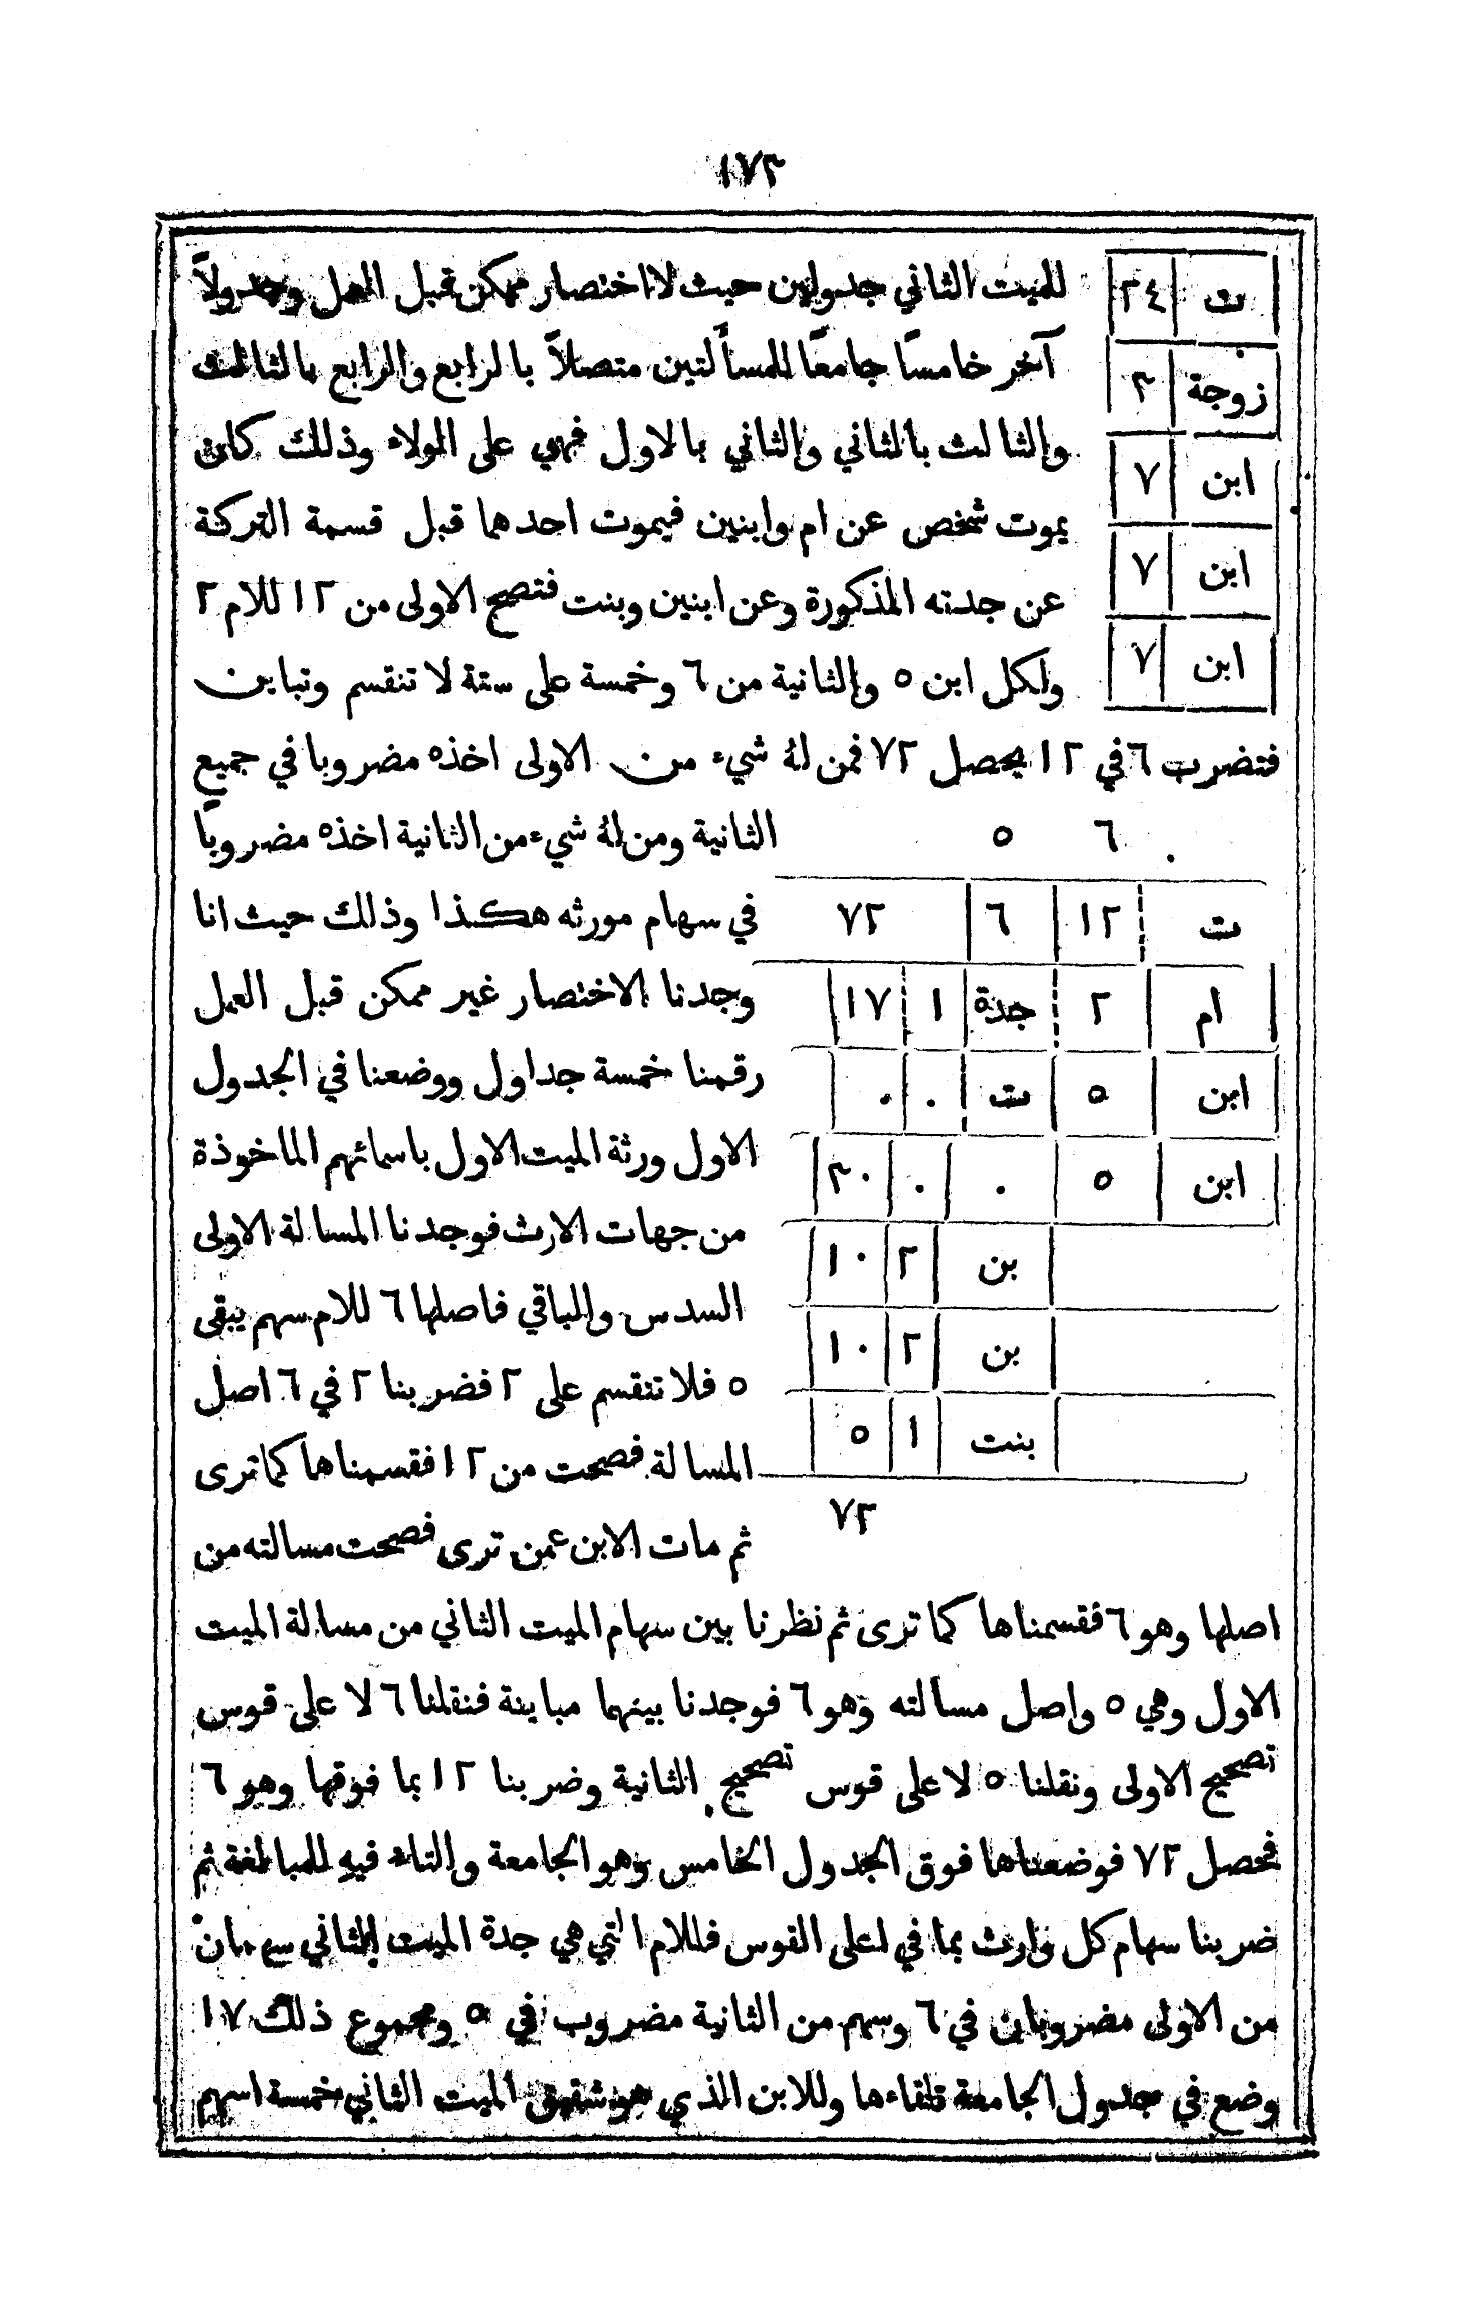 ١٧٣
ت ٢٤
زوجة ٣
ابن ٧
ابن ٧
ابن ٧
للميت الثاني جدولين حيث لا اختصار ممكن قبل العمل وجدولاً
آخر خامسًا جامعًا للمسألتين متصلاً بالرابع والرابع بالثالث
والثالث بالثاني والثاني بالاول فهي على الولاء وذلك كان
يموت شخص عن ام وابنين فيموت احدهما قبل قسمة التركة
عن جدته المذكورة وعن ابنين وبنت فتصح الاولى من ١٢ للام ٢
ولكل ابن ٥ والثانية من ٦ وخمسة على ستة لا تنقسم وتباين
فتضرب ٦ في ١٢ يحصل ٧٢ فمن لهُ شيء من الاولى اخذه مضروبا في جميع
الثانية ومن لهُ شيء من الثانية اخذه مضروبًا
في سهام مورثه هكذا وذلك حيث انا
وجدنا الاختصار غير ممكن قبل العمل
رقمنا خمسة جداول ووضعنا في الجدول
الاول ورثة الميت الاول باسمائهم الماخوذة
من جهات الارث فوجدنا المسالة الاولى
السدس والباقي فاصلها ٦ للام سهم يبقى
٥ فلا تنقسم على ٢ فضربنا ٢ في ٦ اصل
المسالة فصحت من ١٢ فقسمناها كما ترى
ثم مات الابن عمن ترى فصحت مسالته من
٦ ٥
ت ١٢ ٦ ٧٢
ام ٢ جدة ١ ١٧
ابن ٥ ت ٠ ٠
ابن ٥ ٠ ٠ ٣٠
بن ٢ ١٠
بن ٢ ١٠
بنت ١ ٥
٧٢
اصلها وهو ٦ فقسمناها كما ترى ثم نظرنا بين سهام الميت الثاني من مسالة الميت
الاول وهي ٥ واصل مسالته وهو ٦ فوجدنا بينهما مباينة فنقلنا ٦ لا على قوس
تصحيح الاولى ونقلنا ٥ لاعلى قوس تصحيح الثانية وضربنا ١٢ بما فوقها وهو ٦
فحصل ٧٢ فوضعناها فوق الجدول الخامس وهو الجامعة والتاء فيه للمبالغة ثم
ضربنا سهام كل وارث بما في اعلى القوس فللام التي هي جدة الميت الثاني سهمان
من الاولى مضروبان في ٦ وسهم من الثانية مضروب في ٥ ومجموع ذلك ١٧
وضع في جدول الجامعة تلقاءها وللابن الذي هو شقيق الميت الثاني خمسة اسهم